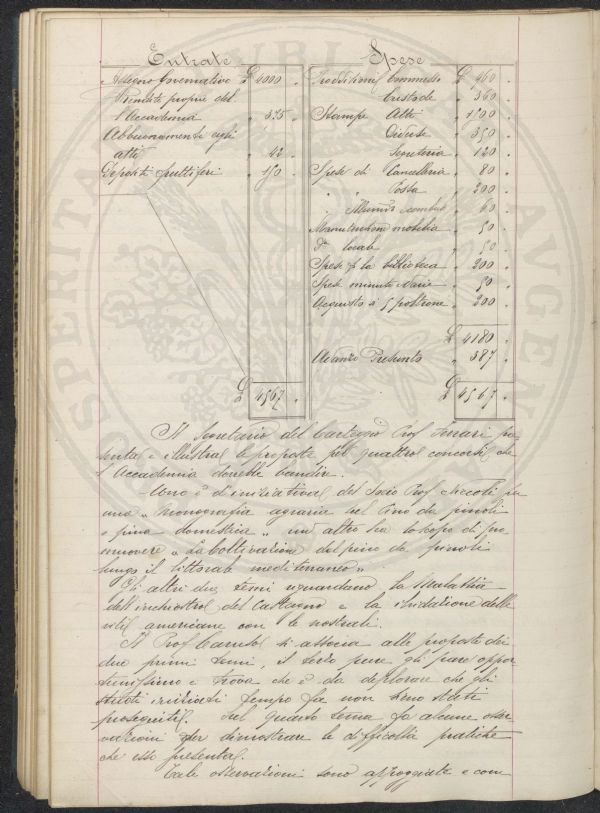 Entrate
Assegno Governativo £ 4000 .
Rendite proprie del
l'Accademia " 375 .
Abbuonamenti agli
atti " 42 .
Depositi fruttiferi " 150 .
£ 4567 .
Spese
Provvisioni Commesso £ 960 .
Custode " 360 .
Stampe Atti " 1500 .
Diverse " 350 .
Segreteria " 120 .
Spese di Cancelleria " 80 .
" Posta " 200 .
" Illumin.e e combust. " 60 .
Manutenzione mobilia " 50 .
D.a locale " 50 .
Spese p. la biblioteca " 200 .
Spese minute e varie " 50 .
Acquisto di 5 poltrone " 200 .
£ 4180 .
Avanzo Presunto " 387 .
£ 4567 .
Il Segretario del Carteggio Prof. Ferrari pre
senta e illustra le proposte pei quattro concorsi che
l'Accademia dovrebbe bandire.
Uno è d'iniziativa del Socio Prof. Niccoli per
una "monografia agraria del Pino da pinoli
o pino domestico" un altro ha lo scopo di pro
muovere "La coltivazione del pino da pinoli
lungo il littorale mediterraneo"
Gli altri due temi riguardano la malattia
dell'inchiostro del Castagno e la ibridazione delle
viti americane con le nostrali.
Il Prof. Caruso si associa alle proposte dei
due primi temi, il terzo pure gli pare oppor
tunissimo e trova che è da deplorare che gli
studi iniziati tempo fa non sieno stati
proseguiti. Sul quarto tema fa alcune osser
vazioni per dimostrare le difficoltà pratiche
che esso presenta.
Tale osservazioni sono appoggiate e com